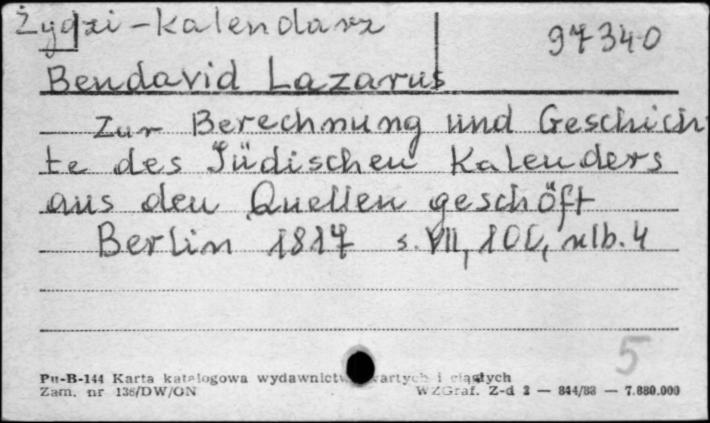 Żydzi - kalendarz
97340
Bendavid Lazarus
Zur Berechnung und Geschich
te des Jüdischen Kalenders
aus den Quellen geschöft
Berlin 1817 s. VII, 10 nlb. 4
5
Pu-B-144 Karta katalogowa wydawnictw zwartych i ciągłych
Zam. nr 136/DW/ON WZGraf. Z-d 2 — 844/83 — 7.880.000